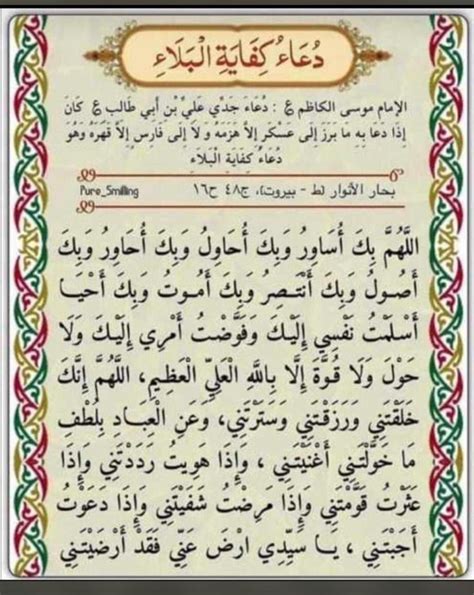 دُعَاءُ كِفَايَةِ الْبَلَاءِ
الإمام موسى الكاظم ع : دُعَاءُ جَدِّي عَلِيِّ بْنِ أَبِي طَالِبٍ ع كَانَ
إِذَا دَعَا بِهِ مَا بَرَزَ إِلَى عَسْكَرٍ إِلاَّ هَزَمَهُ وَ لاَ إِلَى فَارِسٍ إِلاَّ قَهَرَهُ وَهُوَ
دُعَاءُ كِفَايَةِ الْبَلَاءِ
بحار الأنوار (ط - بيروت)، ج٤٨ ح١٦
Pure_Smiling
اللَّهُمَّ بِكَ أُسَاوِرُ وَبِكَ أُحَاوِلُ وَبِكَ أُحَاوِرُ وَبِكَ
أَصُولُ وَبِكَ أَنْتَصِرُ وَبِكَ أَمُوتُ وَبِكَ أَحْيَا
أَسْلَمْتُ نَفْسِي إِلَيْكَ وَفَوَّضْتُ أَمْرِي إِلَيْكَ وَلَا
حَوْلَ وَلَا قُوَّةَ إِلَّا بِاللَّهِ الْعَلِيِّ الْعَظِيمِ، اللَّهُمَّ إِنَّكَ
خَلَقْتَنِي وَرَزَقْتَنِي وَسَتَرْتَنِي، وَعَنِ الْعِبَادِ بِلُطْفِ
مَا خَوَّلْتَنِي أَغْنَيْتَنِي ، وَإِذَا هَوِيتُ رَدَدْتَنِي وَإِذَا
عَثَرْتُ قَوَّمْتَنِي وَإِذَا مَرِضْتُ شَفَيْتَنِي وَإِذَا دَعَوْتُ
أَجَبْتَنِي ، يَا سَيِّدِي ارْضَ عَنِّي فَقَدْ أَرْضَيْتَنِي